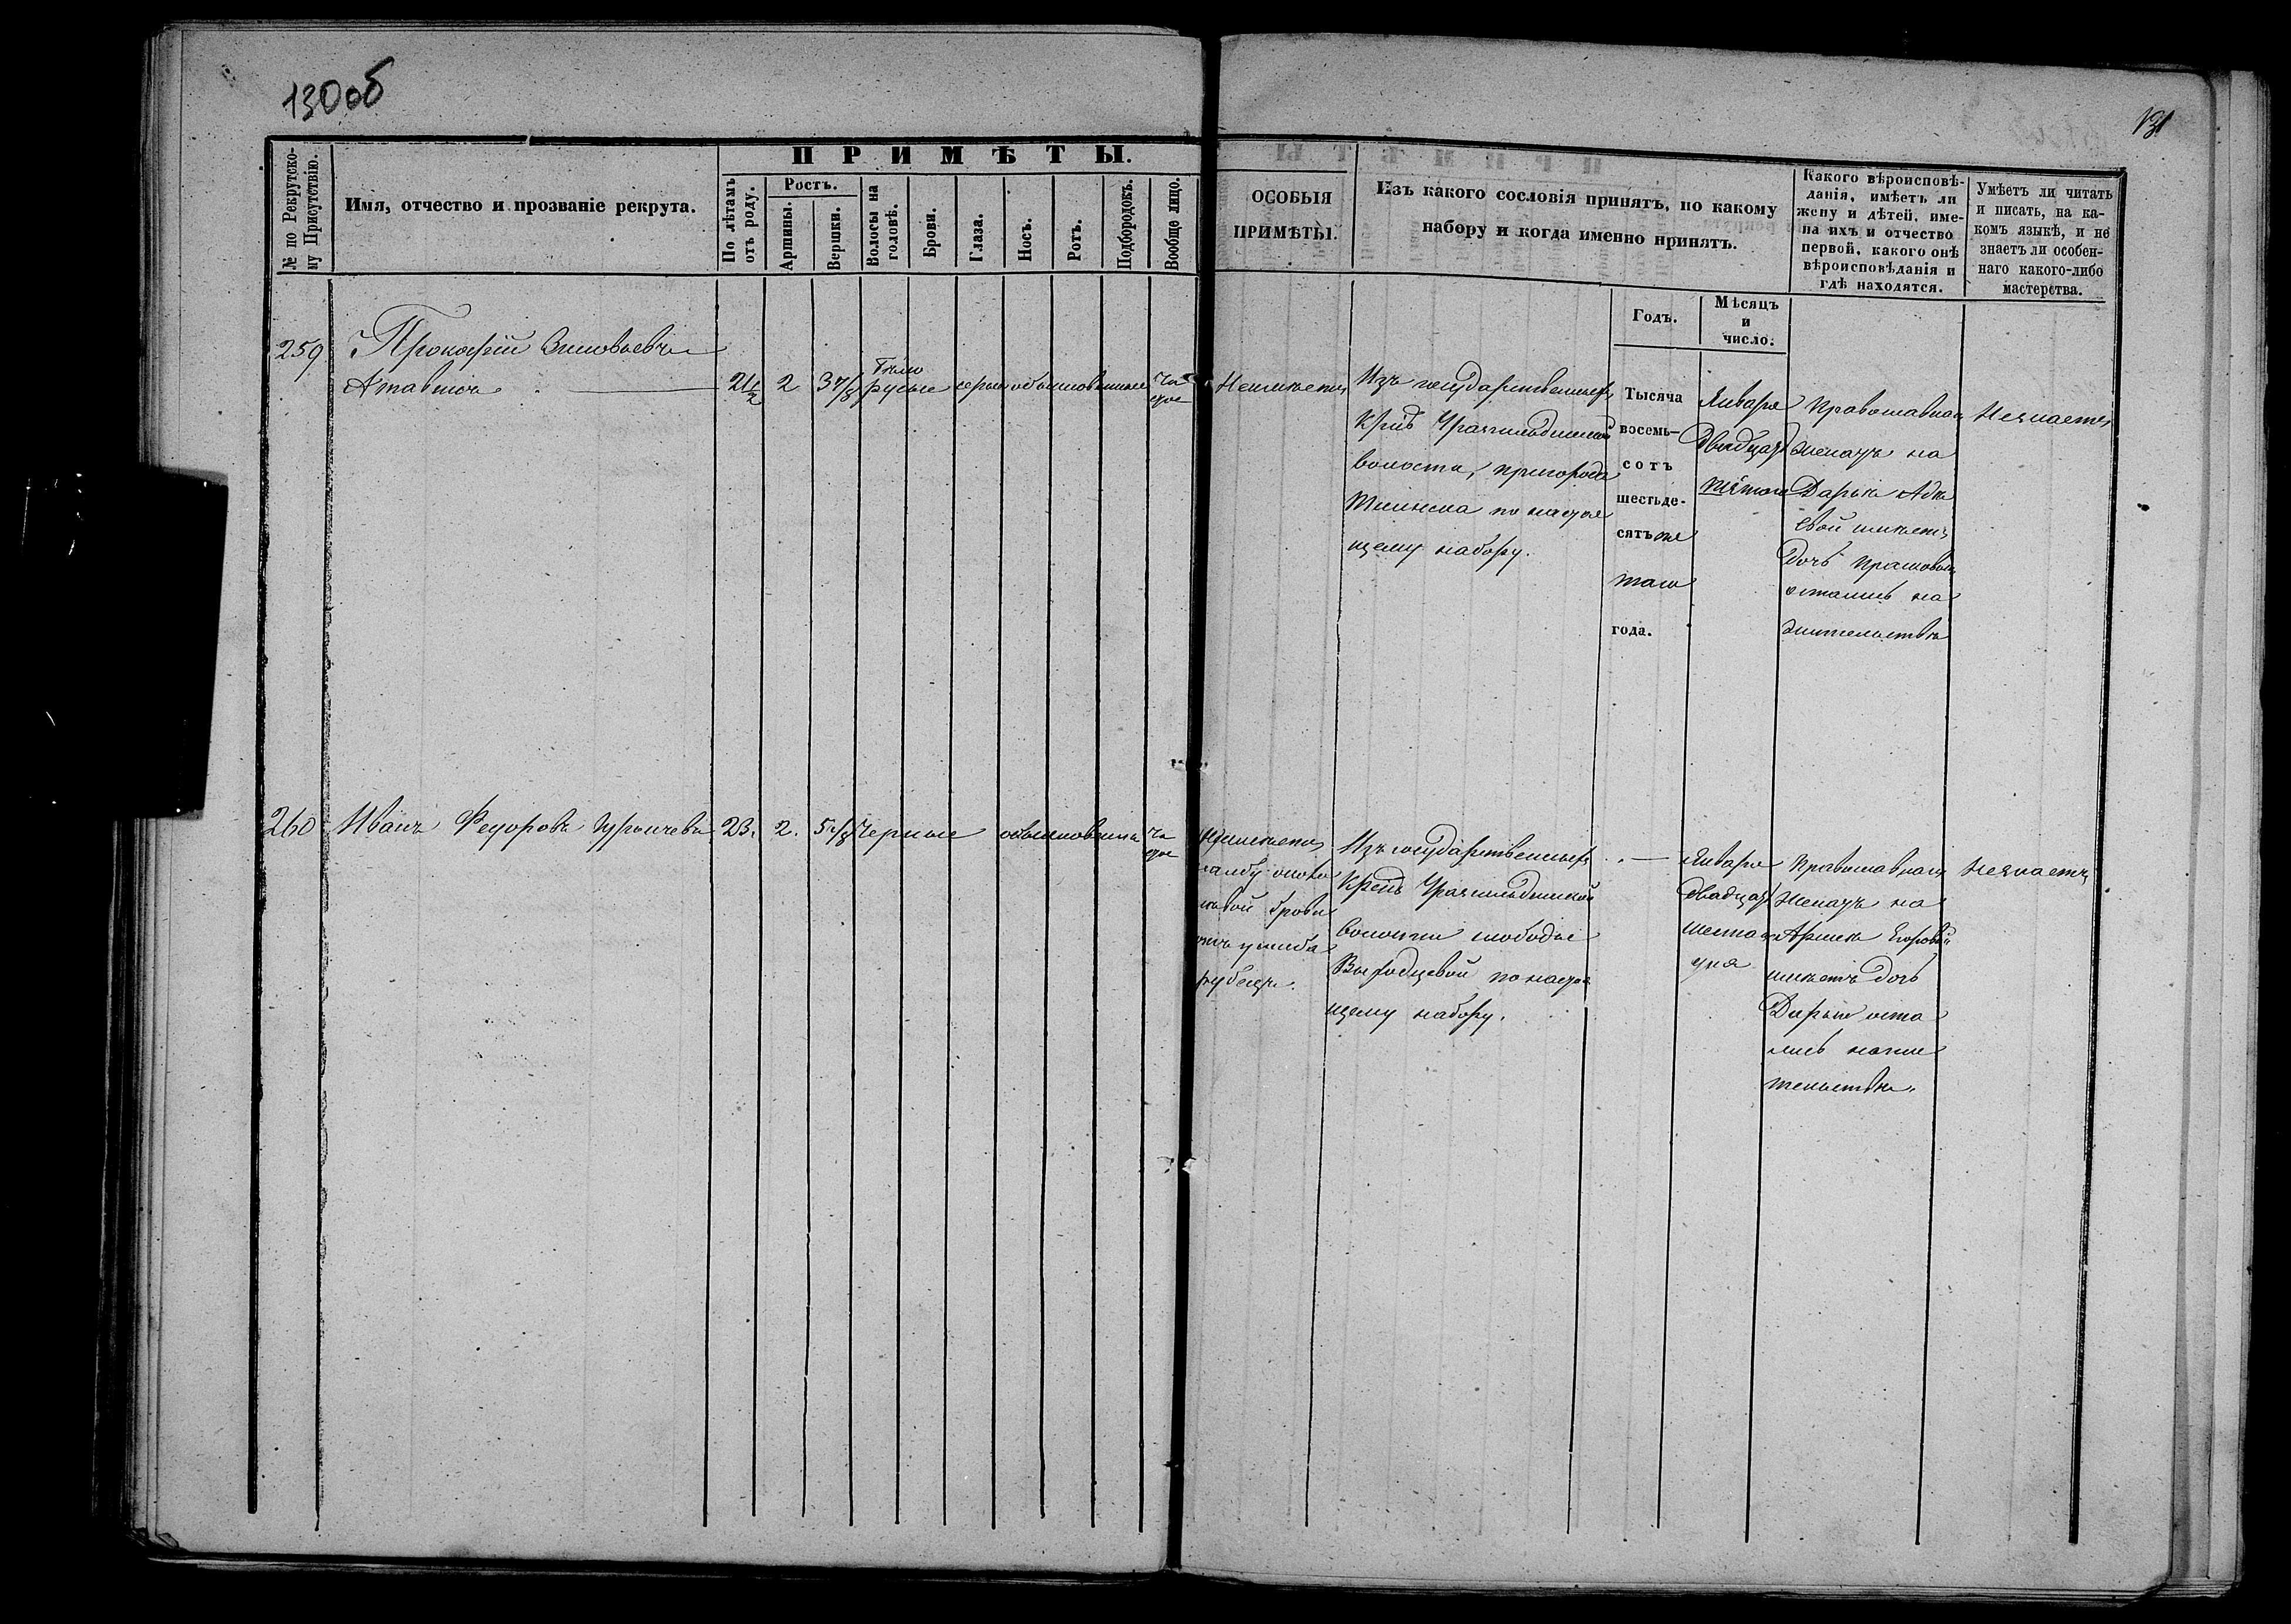 130об
131
ПРИМѢТЫ.
№ по Рекрутско-
му Присутствію.
Имя, отчество и прозваніе рекрута.
По лѣтамъ
отъ роду.
Ростъ.
Аршины.
Вершки.
Волосы на
головѣ.
Брови.
Глаза.
Носъ.
Ротъ.
Подбородокъ.
Вообще лицо.
ОСОБЫЯ
ПРИМѢТЫ.
Изъ какого сословія принятъ, по какому
набору и когда именно принятъ.
Какого вѣроисповѣ-
данія, имѣетъ ли
жену и дѣтей, име-
на ихъ и отчество
первой, какого онѣ
вѣроисповѣданія и
гдѣ находятся.
Умѣетъ ли читать
и писать, на ка-
комъ языкѣ, и не
знаетъ ли особен-
наго какого-либо
мастерства.
Годъ.
Мѣсяцъ
и
число.
259
Прокофій Зиновьевъ
21½
2
3⅞
русые
серые
обыкновенные
чи
стое
Неимѣетъ
Изъ государственныхъ
волости, пригорода
Тіинска по настоя
щему набору.
Тысяча
восемь-
сотъ
шестьде-
сятъ пя
таго
года.
Января
двадцать
пятаго
Православнаго
женатъ на
Дарьѣ
имѣетъ
дочь Прасковью
остались на
жительствѣ
Незнаетъ
260
Иванъ Федоровъ
23.
2.
5⅛
Черные
обыкновенны
чи
стое
на лбу около
лѣвой брови
отъ ушиба
рубецъ.
Изъ государственныхъ
волости слободы
по настоя
щему набору.
Января
двадцать
шестаго
дня
Православнаго
Женатъ на
Егоровой
имѣетъ дочь
Дарью оста
лись на жи
тельствѣ.
Незнаетъ